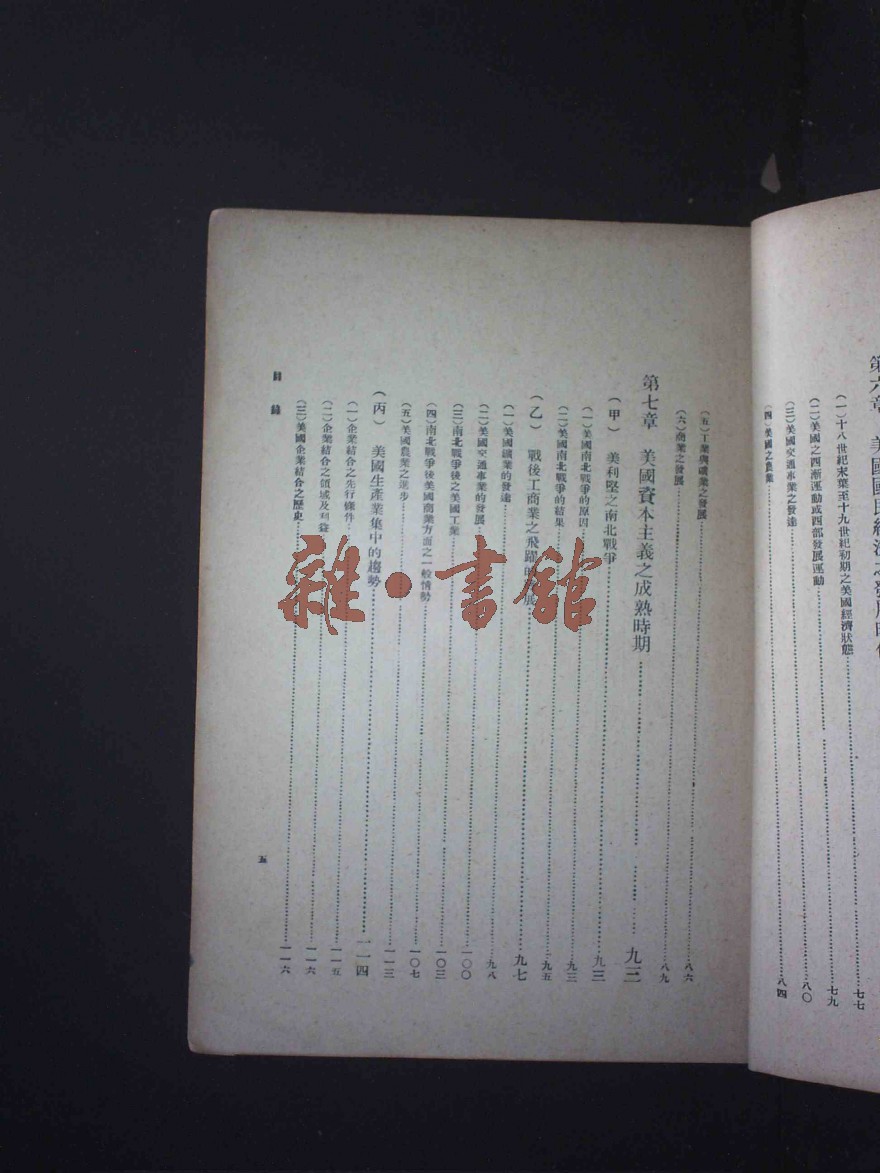 第六章　美國國民經濟之發展時代
（一）十八世紀末葉至十九世紀初期之美國經濟狀態……七七
（二）美國之西漸運動或西部發展運動……七九
（三）美國交通事業之發達……八〇
（四）美國之農業……八四
（五）工業與礦業之發展……八六
（六）商業之發展……八九
第七章　美國資本主義之成熟時期……九三
（甲）　美利堅之南北戰爭……九三
（一）美國南北戰爭的原因……九三
（二）美國南北戰爭的結果……九五
（乙）　戰後工商業之飛躍的……九七
（一）美國鐵業的發達……九八
（二）美國交通事業的發展
（三）南北戰爭後之美國工業……一〇〇
（四）南北戰爭後美國商業方面之一般情勢……一〇三
（五）美國農業之進步……一〇七
（丙）　美國生產業集中的趨勢……一一四
（一）企業結合之先行條件……一一五
（二）企業結合之領域及利益……一一六
（三）美國企業結合之歷史……一一六
目錄
五
雜·書館